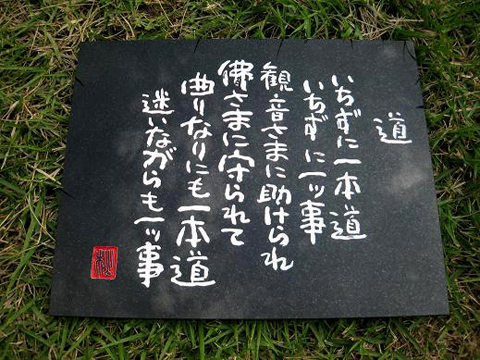 道
いちずに一本道
いちずに一ッ事
観音さまに助けられ
佛さまに守られて
曲りなりにも一本道
迷いながらも一ッ事